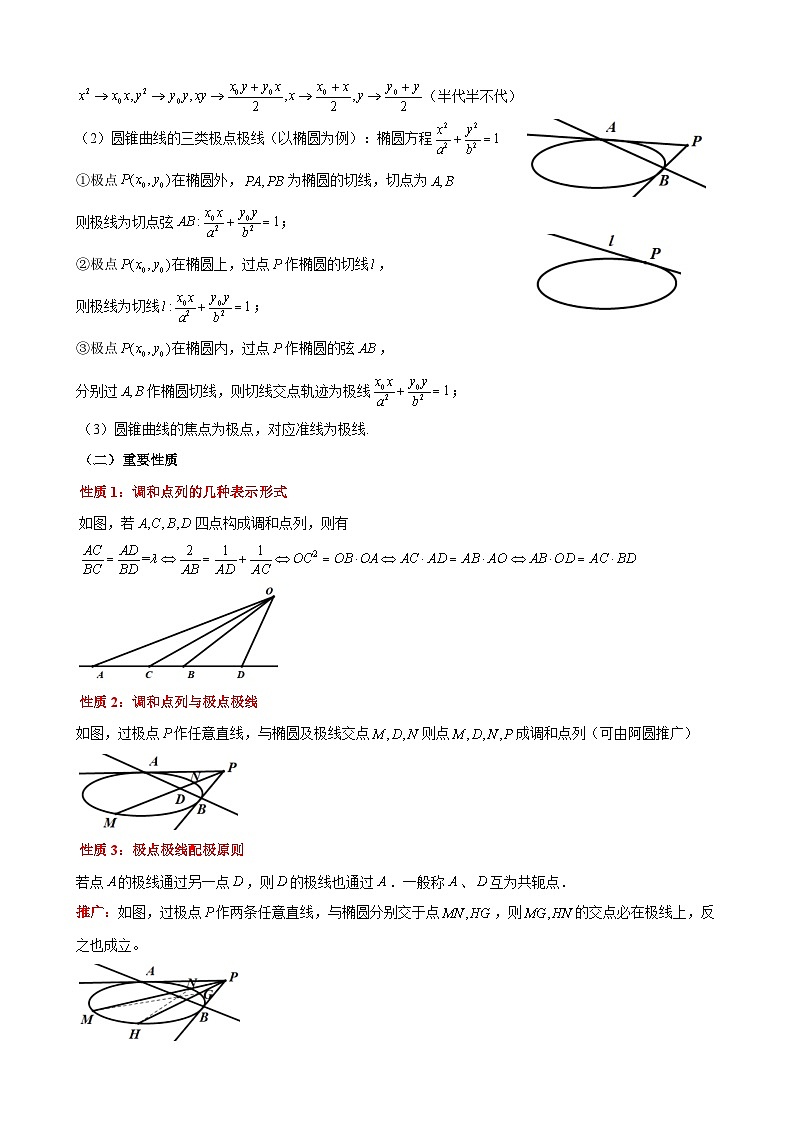 x² → x₀x, y² → y₀y, xy → (x₀y + y₀x)/2, x → (x₀ + x)/2, y → (y₀ + y)/2（半代半不代）
（2）圆锥曲线的三类极点极线（以椭圆为例）：椭圆方程 x²/a² + y²/b² = 1
①极点 P(x₀, y₀)在椭圆外，PA, PB 为椭圆的切线，切点为 A, B
则极线为切点弦 AB : x₀x/a² + y₀y/b² = 1；
A
P
B
②极点 P(x₀, y₀)在椭圆上，过点 P 作椭圆的切线 l，
则极线为切线 l : x₀x/a² + y₀y/b² = 1；
l
P
③极点 P(x₀, y₀)在椭圆内，过点 P 作椭圆的弦 AB，
分别过 A, B 作椭圆切线，则切线交点轨迹为极线 x₀x/a² + y₀y/b² = 1；
（3）圆锥曲线的焦点为极点，对应准线为极线.
（二）重要性质
性质 1：调和点列的几种表示形式
如图，若 A, C, B, D 四点构成调和点列，则有
AC/BC = AD/BD = λ ⇔ 2/AB = 1/AD + 1/AC ⇔ OC² = OB · OA ⇔ AC · AD = AB · AO ⇔ AB · OD = AC · BD
O
A C B D
性质 2：调和点列与极点极线
如图，过极点 P 作任意直线，与椭圆及极线交点 M, D, N 则点 M, D, N, P 成调和点列（可由阿圆推广）
A
P
N
D
B
M
性质 3：极点极线配极原则
若点 A 的极线通过另一点 D，则 D 的极线也通过 A．一般称 A、D 互为共轭点．
推广：如图，过极点 P 作两条任意直线，与椭圆分别交于点 MN, HG，则 MG, HN 的交点必在极线上，反
之也成立。
A
P
N
G
M
B
H